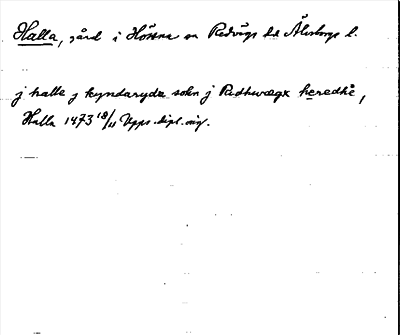 Halla, gård i Hössna sn Redvägs hd Älvsborgs l.
j halle j kyndaryda sokn j Redhwægx heredhe,
Halla 1473 18/11 Upps. dipl. orig.